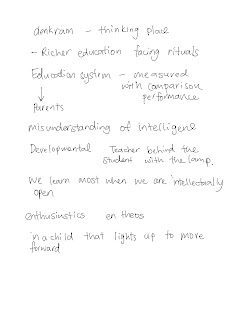 denkram - thinking place
- Richer education facing rituals
Education system - measured
with comparison
performance
↓
Parents
misunderstanding of intelligene
Developmental Teacher behind the
student with the lamp.
We learn most when we are intellectually
open
enthusiustics en theos
in a child that lights up to more
forward